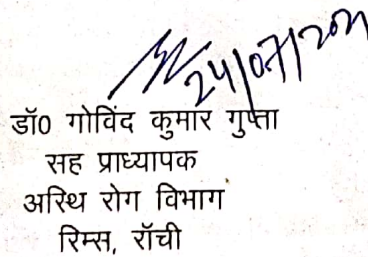 24/07/2021
डॉ0 गोविंद कुमार गुप्ता
सह प्राध्यापक
अस्थि रोग विभाग
रिम्स, राँची